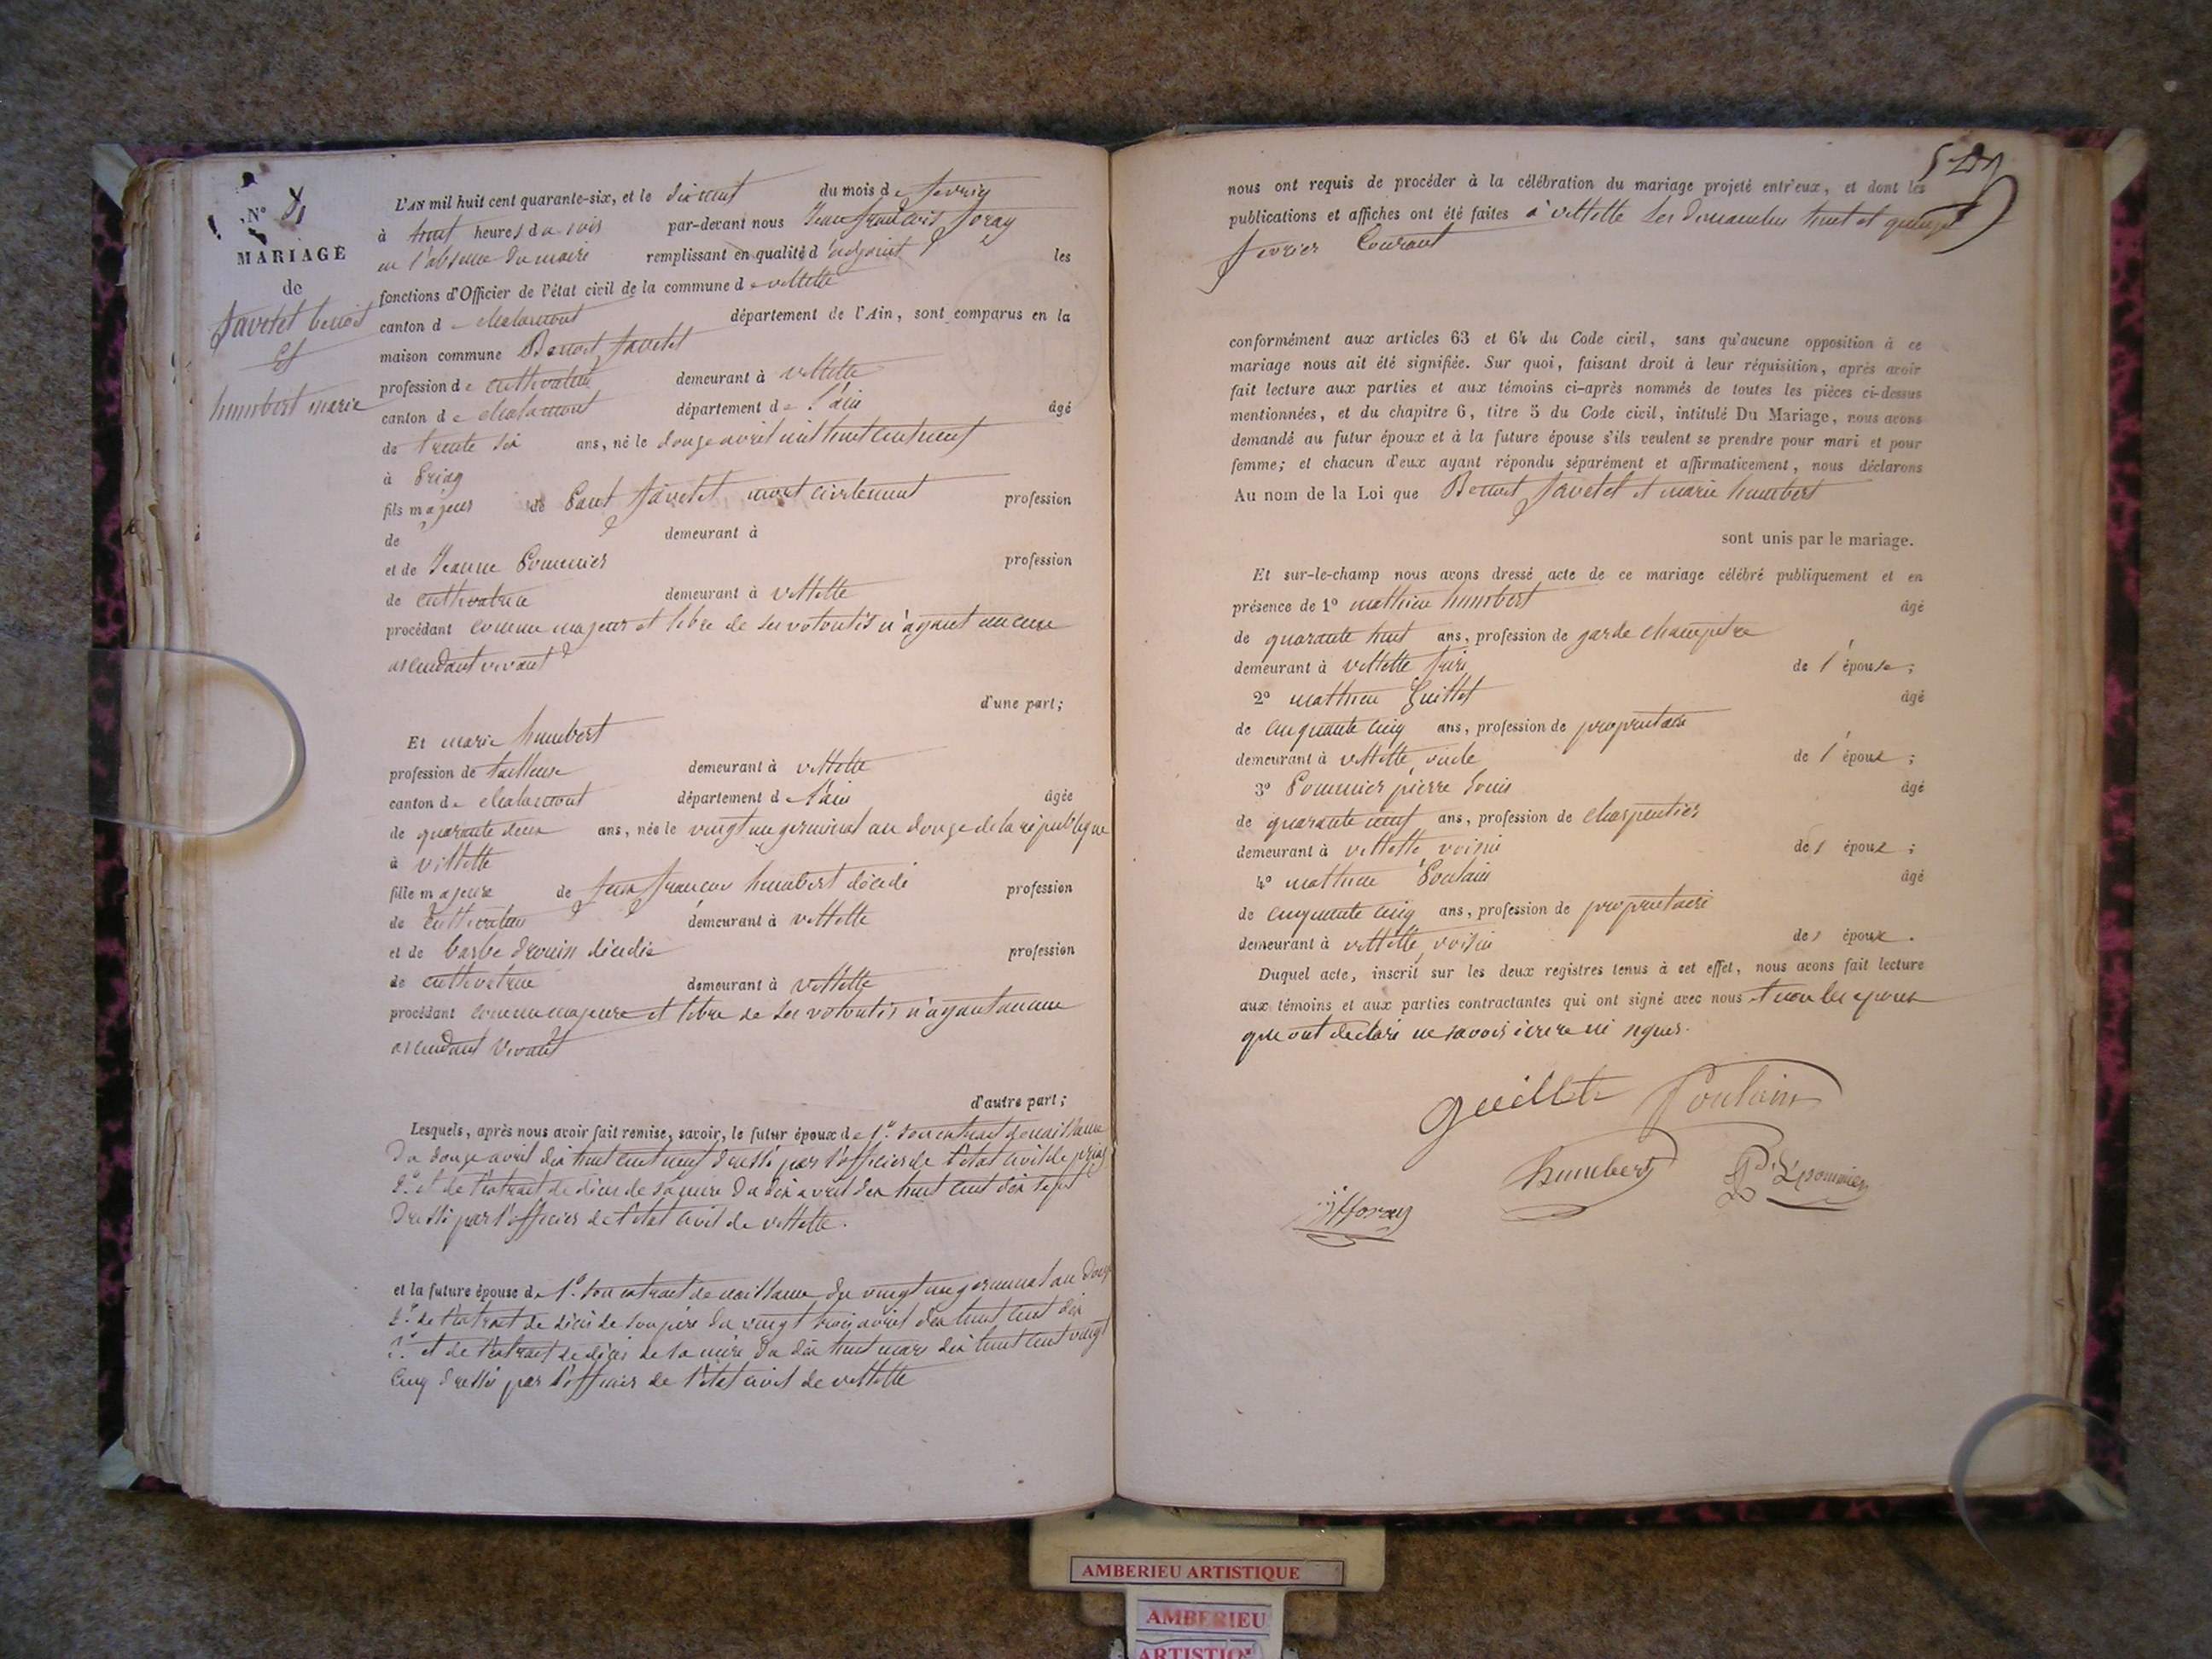 N° 4
MARIAGE
de
favetet benoit
Et
humbert marie
L'AN mil huit cent quarante-six, et le dixneuf du mois de fevrier
à huit heures du soir par-devant nous Jean françois foray
en l'absence du maire remplissant en qualité d'adjoint les
fonctions d'Officier de l'état civil de la commune de villette
canton de chalamont département de l'Ain, sont comparus en la
maison commune Benoit favetet
profession de cultivateur demeurant à villette
canton de chalamont département de l'ain âgé
de trente six ans, né le douze avril mil huit cent neuf
à Priay
fils majeur de Paul favetet mort civilement profession
de demeurant à
et de Jeanne Pommier profession
de cultivatrice demeurant à villette
procédant comme majeur et libre de ses volontés n'ayant aucun
ascendant vivant
d'une part;
Et marie humbert
profession de tailleuse demeurant à villette
canton de chalamont département de l'ain âgée
de quarante deux ans, née le vingt un germinal an douze de la république
à villette
fille majeure de jean françois humbert décédé profession
de cultivateur demeurant à villette
et de barbe drouin décédée profession
de cultivatrice demeurant à villette
procédant comme majeure et libre de ses volontés n'ayant aucun
ascendant vivant
d'autre part;
Lesquels, après nous avoir fait remise, savoir, le futur époux de 1° son extrait de naissance
du douze avril dix huit cent neuf dressé par l'officier de l'état civil de priay
2° et de l'extrait de décès de sa mère du dix avril dix huit cent dix sept
dressé par l'officier de l'état civil de villette.
et la future épouse de 1° son extrait de naissance du vingt un germinal an douze
2° de l'extrait de décès de son père du vingt trois avril dix huit cent dix
3° et de l'extrait de décès de sa mère du dix huit mars dix huit cent vingt
cinq dressés par l'officier de l'état civil de villette
nous ont requis de procéder à la célébration du mariage projeté entr'eux, et dont les
publications et affiches ont été faites à villette les dimanches huit et quinze
fevrier courant
conformément aux articles 63 et 64 du Code civil, sans qu'aucune opposition à ce
mariage nous ait été signifiée. Sur quoi, faisant droit à leur réquisition, après avoir
fait lecture aux parties et aux témoins ci-après nommés de toutes les pièces ci-dessus
mentionnées, et du chapitre 6, titre 5 du Code civil, intitulé Du Mariage, nous avons
demandé au futur époux et à la future épouse s'ils veulent se prendre pour mari et pour
femme; et chacun d'eux ayant répondu séparément et affirmativement, nous déclarons
Au nom de la Loi que Benoit favetet et marie humbert
sont unis par le mariage.
Et sur-le-champ nous avons dressé acte de ce mariage célébré publiquement et en
présence de 1° mathieu humbert âgé
de quarante huit ans, profession de garde champetre
demeurant à villette frère de l'épouse;
2° mathieu Guillet âgé
de cinquante cinq ans, profession de proprietaire
demeurant à villette oncle de l'époux;
3° Pommier pierre Louis âgé
de quarante neuf ans, profession de charpentier
demeurant à villette voisin des époux;
4° mathieu Poulain âgé
de cinquante cinq ans, profession de proprietaire
demeurant à villette voisin des époux.
Duquel acte, inscrit sur les deux registres tenus à cet effet, nous avons fait lecture
aux témoins et aux parties contractantes qui ont signé avec nous et non les epoux
qui ont declaré ne savoir écrire ni signer.
guillet Poulain
humbert P. Lpommier
jf foray
AMBERIEU ARTISTIQUE
AMBERIEU
ARTISTIQ